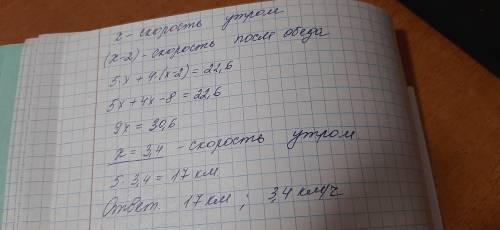 x - скорость утром
(x-2) - скорость после обеда
5x + 4(x-2) = 22,6
5x + 4x - 8 = 22,6
9x = 30,6
x = 3,4 - скорость утром
5·3,4 = 17 км
Ответ: 17 км; 3,4 км/ч